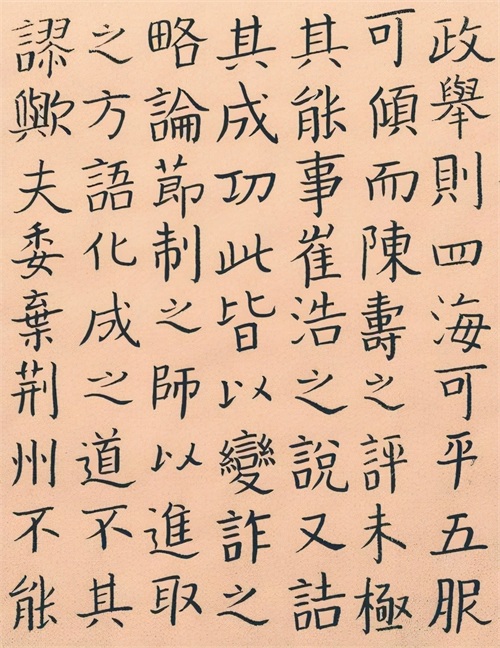 政舉則四海可平五服
可傾而陳壽之評未極
其能事崔浩之說又詰
其成功此皆以變詐之
略論節制之師以進取
之方語化成之道不其
謬歟夫委棄荊州不能